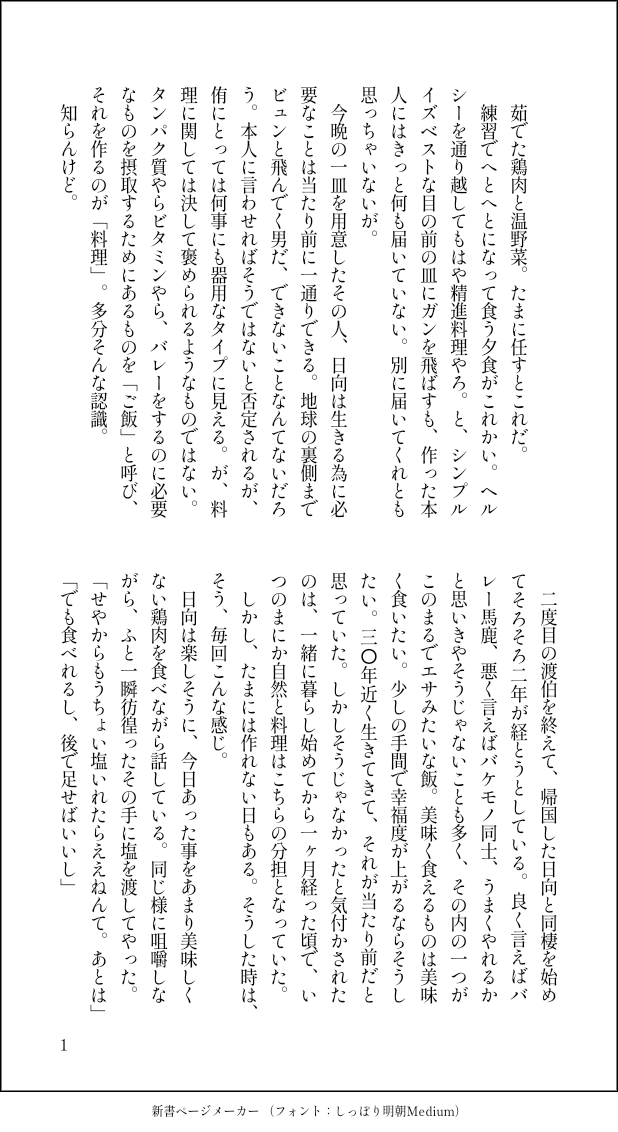 茹でた鶏肉と温野菜。たまに任すとこれだ。
　練習でへとへとになって食う夕食がこれかい。ヘル
シーを通り越してもはや精進料理やろ。と、シンプル
イズベストな目の前の皿にガンを飛ばすも、作った本
人にはきっと何も届いていない。別に届いてくれとも
思っちゃいないが。
　今晩の一皿を用意したその人、日向は生きる為に必
要なことは当たり前に一通りできる。地球の裏側まで
ビュンと飛んでく男だ、できないことなんてないだろ
う。本人に言わせればそうではないと否定されるが、
侑にとっては何事にも器用なタイプに見える。が、料
理に関しては決して褒められるようなものではない。
タンパク質やらビタミンやら、バレーをするのに必要
なものを摂取するためにあるものを「ご飯」と呼び、
それを作るのが「料理」。多分そんな認識。
　知らんけど。
　二度目の渡伯を終えて、帰国した日向と同棲を始め
てそろそろ二年が経とうとしている。良く言えばバ
レー馬鹿、悪く言えばバケモノ同士、うまくやれるか
と思いきやそうじゃないことも多く、その内の一つが
このまるでエサみたいな飯。美味く食えるものは美味
く食いたい。少しの手間で幸福度が上がるならそうし
たい。三〇年近く生きてきて、それが当たり前だと
思っていた。しかしそうじゃなかったと気付かされた
のは、一緒に暮らし始めてから一ヶ月経った頃で、い
つのまにか自然と料理はこちらの分担となっていた。
　しかし、たまには作れない日もある。そうした時は、
そう、毎回こんな感じ。
　日向は楽しそうに、今日あった事をあまり美味しく
ない鶏肉を食べながら話している。同じ様に咀嚼しな
がら、ふと一瞬彷徨ったその手に塩を渡してやった。
「せやからもうちょい塩いれたらええねんて。あとは」
「でも食べれるし、後で足せばいいし」
1
新書ページメーカー（フォント：しっぽり明朝Medium）